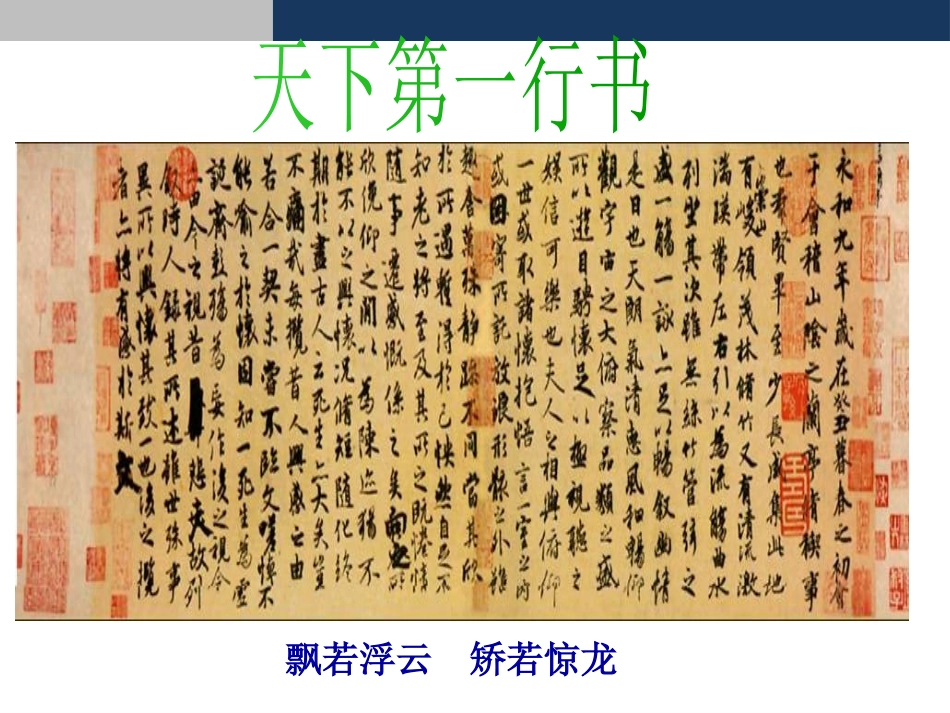 天下第一行书
永和九年歲在癸丑暮春之初會
于會稽山陰之蘭亭脩稧事
也羣賢畢至少長咸集此地
有崇山峻領茂林脩竹又有清流激
湍暎帶左右引以為流觴曲水
列坐其次雖無絲竹管弦之
盛一觴一詠亦足以暢敘幽情
是日也天朗氣清惠風和暢仰
觀宇宙之大俯察品類之盛
所以遊目騁懷足以極視聽之
娛信可樂也夫人之相與俯仰
一世或取諸懷抱悟言一室之內
或因寄所託放浪形骸之外雖
趣舍萬殊靜躁不同當其欣
於所遇暫得於己怏然自足不
知老之將至及其所之既惓情
隨事遷感慨係之矣向之所
欣俛仰之閒以為陳迹猶不
能不以之興懷況脩短隨化終
期於盡古人云死生亦大矣豈
不痛哉每攬昔人興感之由
若合一契未嘗不臨文嗟悼不
能喻之於懷固知一死生為虛
誕齊彭殤為妄作後之視今
由今之視昔悲夫故列
敘時人錄其所述雖世殊事
異所以興懷其致一也後之攬
者亦將有感於斯文
飘若浮云 矫若惊龙